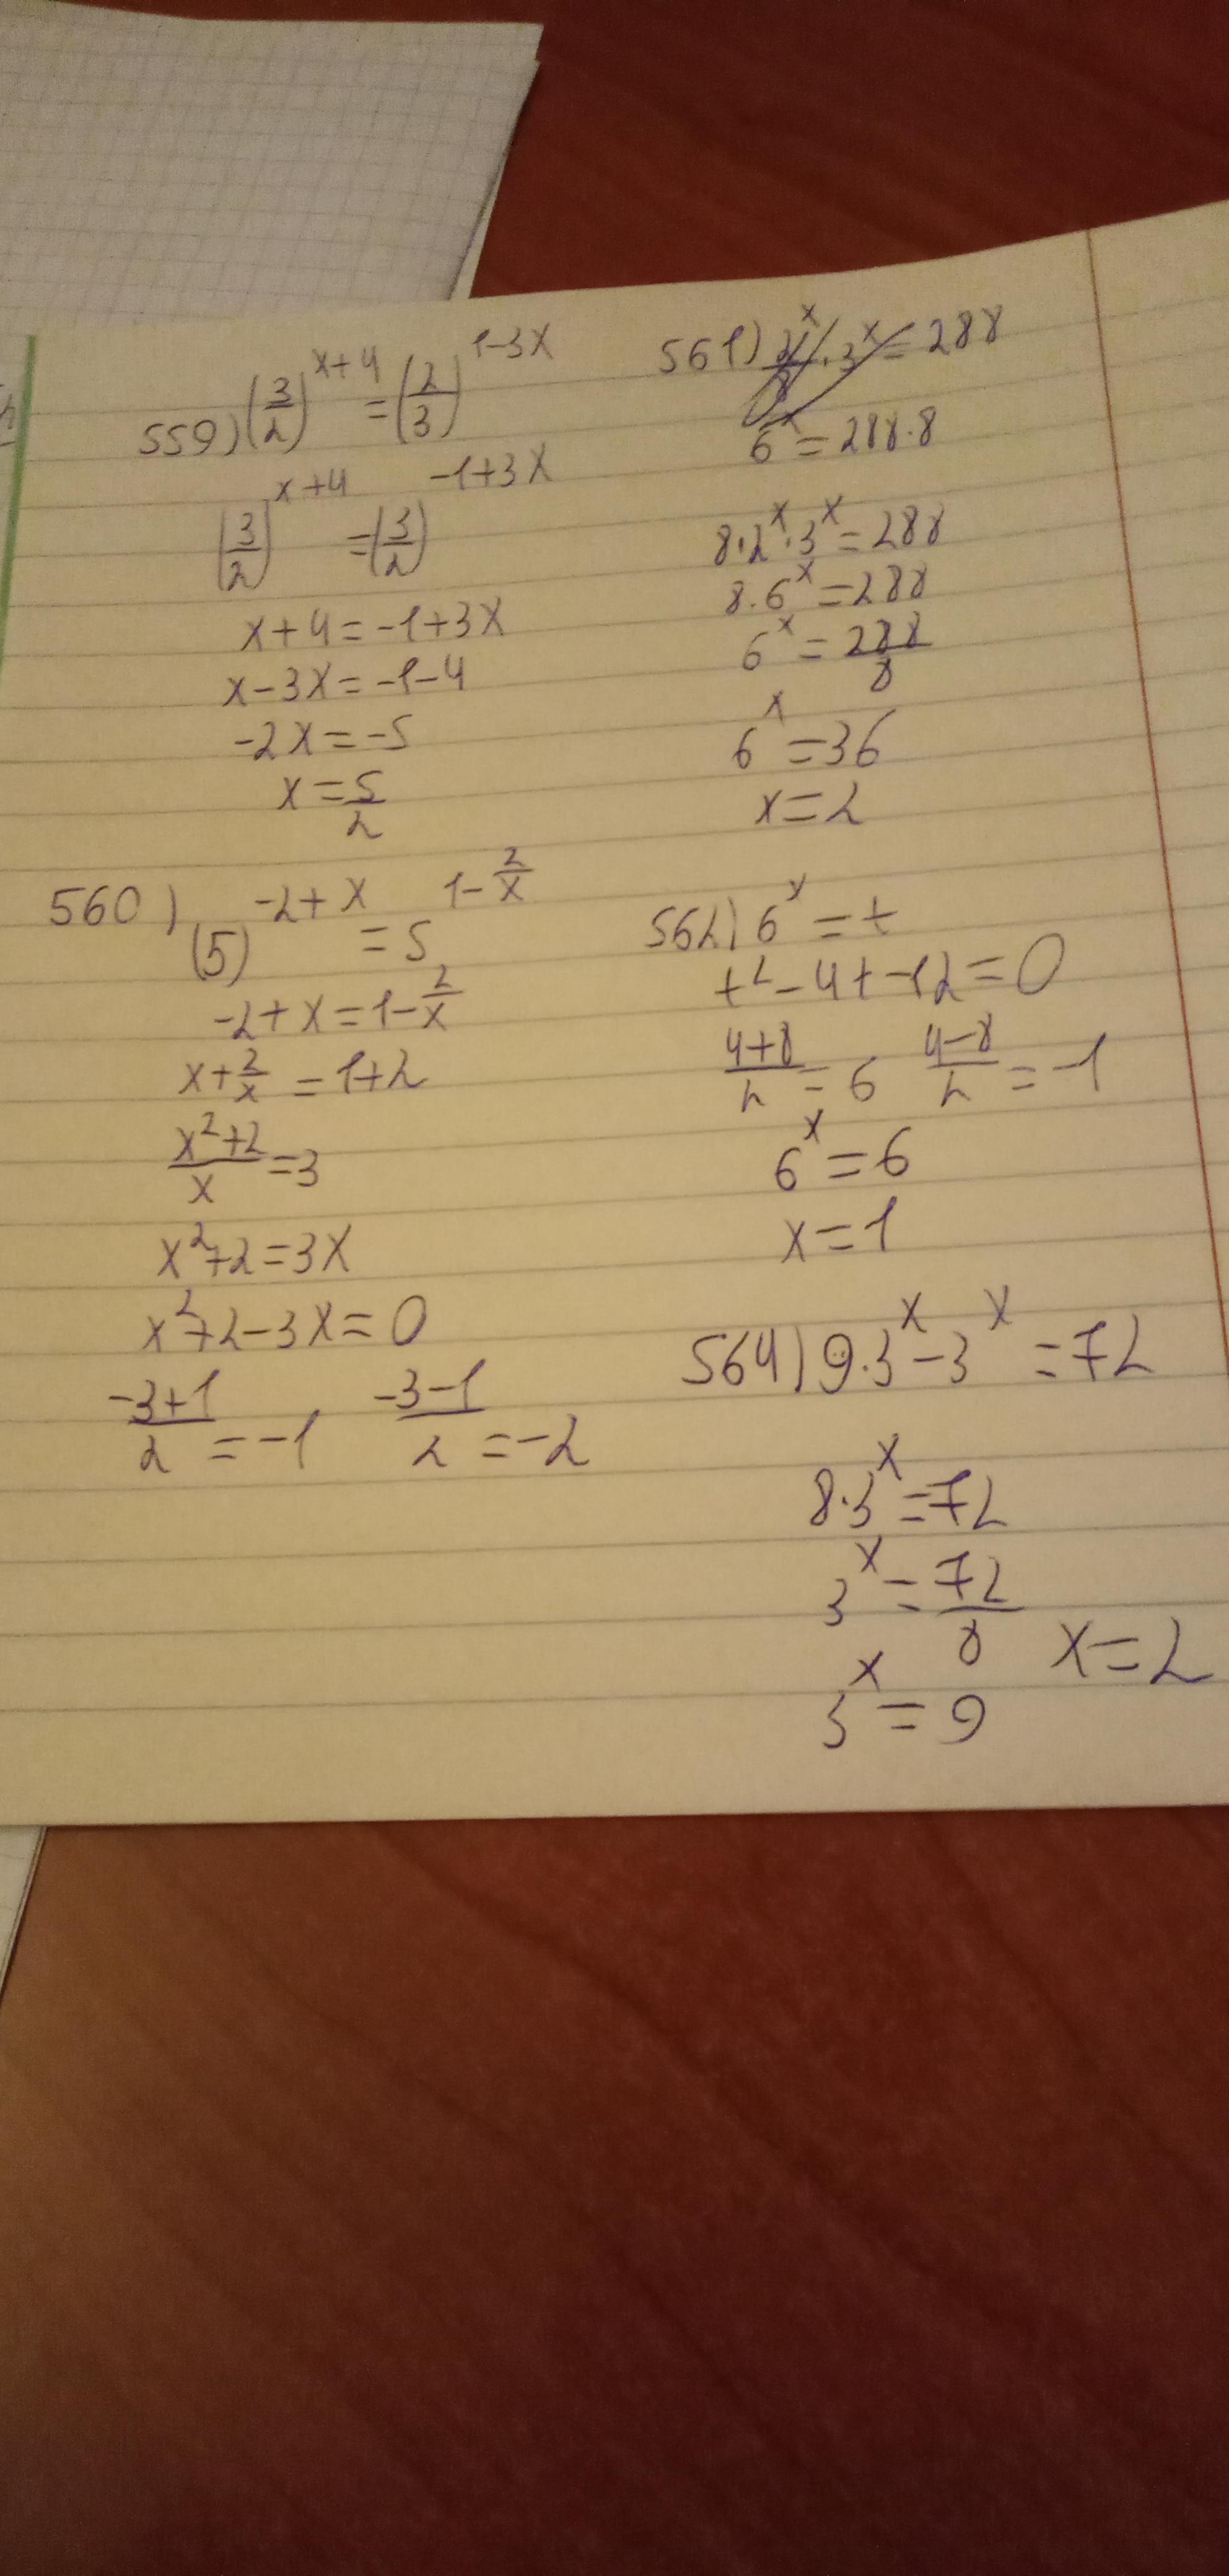 559) (3/2)^(x+4) = (2/3)^(1-3x)
(3/2)^(x+4) = (3/2)^(-1+3x)
x+4=-1+3x
x-3x=-1-4
-2x=-5
x=5/2
560) (5)^(-2+x) = 5^(1-2/x)
-2+x=1-2/x
x+2/x=1+2
(x²+2)/x=3
x²+2=3x
x²+2-3x=0
(-3+1)/2=-1 (-3-1)/2=-2
561) · 3^x = 288
6^x=288·8
8·2^x·3^x=288
8·6^x=288
6^x=288/8
6^x=36
x=2
562) 6^x=t
t²-4t-12=0
(4+8)/2=6 (4-8)/2=-1
6^x=6
x=1
564) 9·3^x-3^x=72
8·3^x=72
3^x=72/8
3^x=9 x=2